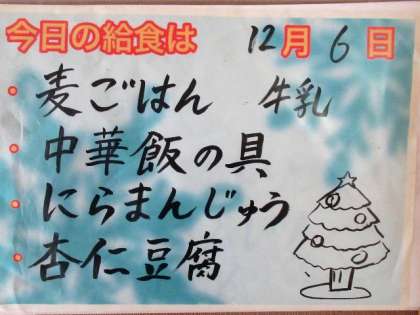 今日の給食は 12月 6日
・麦ごはん 牛乳
・中華飯の具
・にらまんじゅう
・杏仁豆腐